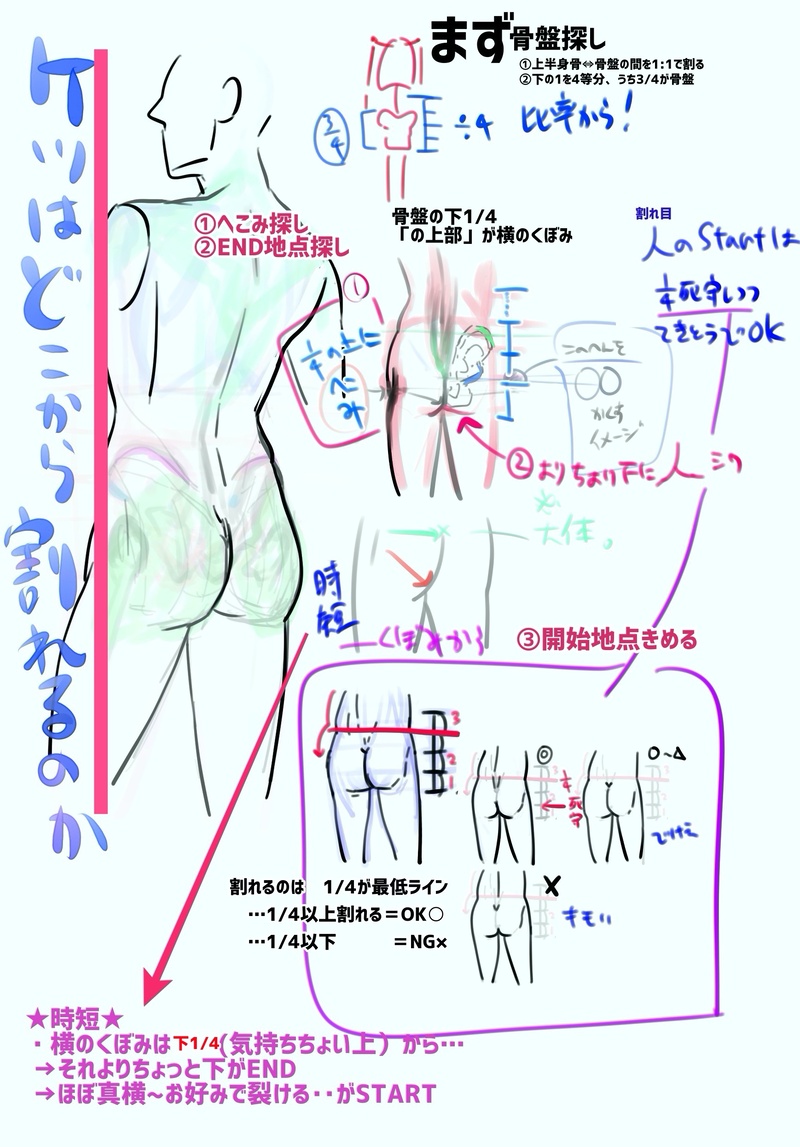 ケツはどこから割れるのか
まず骨盤探し
①上半身骨⇔骨盤の間を1:1で割る
②下の1を4等分、うち3/4が骨盤
3/4
÷4
比率から!
①へこみ探し
②END地点探し
骨盤の下1/4
「の上部」が横のくぼみ
割れ目
人のStartは
1/4死守しつつ
てきとうでOK
①
1/4の上に
へこみ
このへんを
かくす
イメージ
②よりちょり下に人ミゾ
※
大体。
時短
くぼみから
③開始地点きめる
3
2
1
◎
1/4死守
○~△
でけえ
×
キモい
割れるのは 1/4が最低ライン
…1/4以上割れる=OK○
…1/4以下 =NG×
★時短★
・横のくぼみは下1/4(気持ちちょい上)から…
→それよりちょっと下がEND
→ほぼ真横~お好みで裂ける‥がSTART